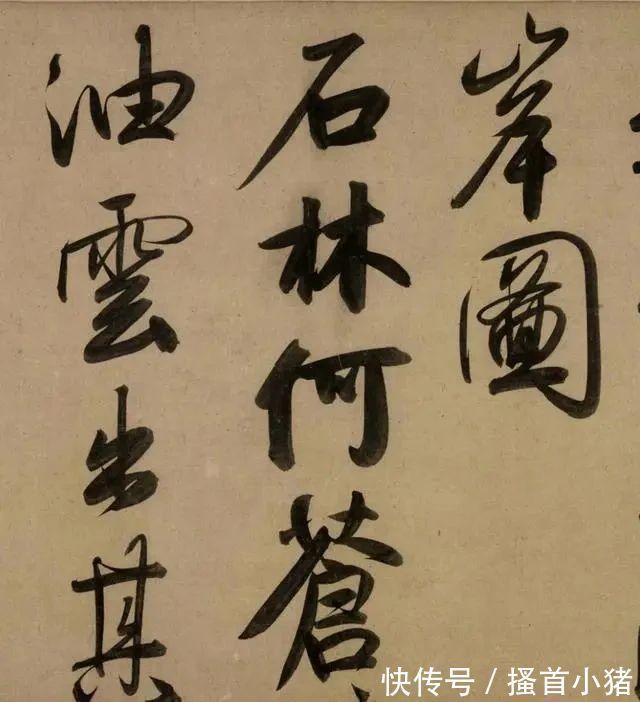 岸圖
石林何蒼
油雲出其
快传号/搔首小猪